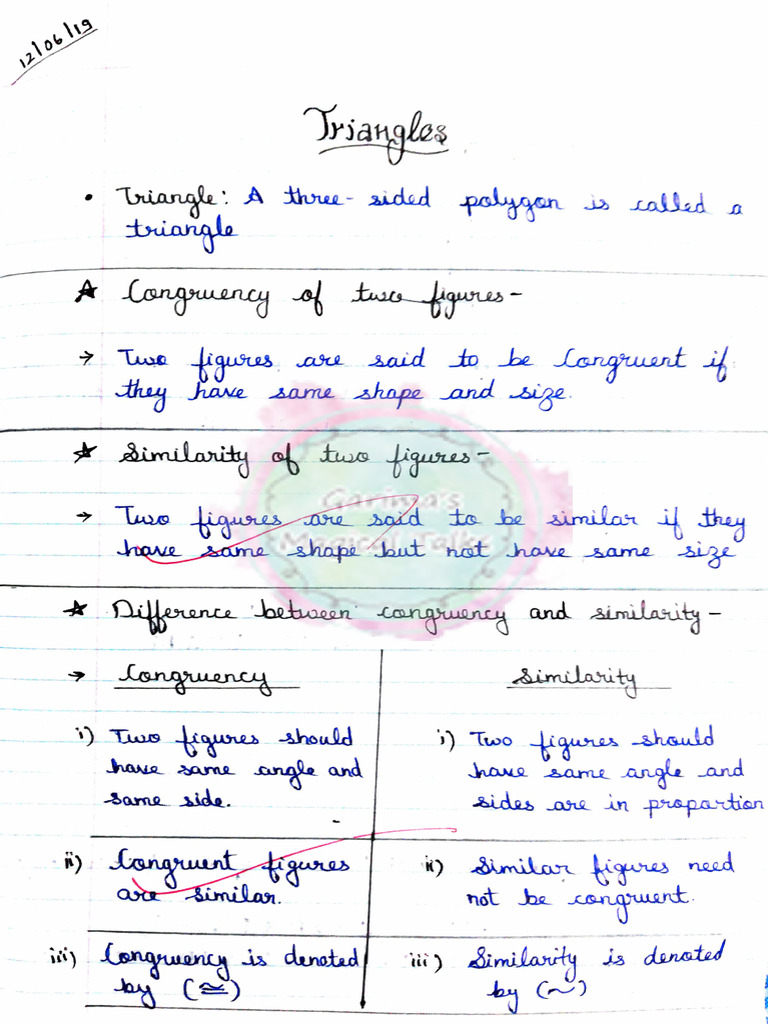 12/06/19
Triangles
• Triangle: A three-sided polygon is called a
triangle
★ Congruency of two figures-
→ Two figures are said to be Congruent if
they have same shape and size.
★ Similarity of two figures-
Garima's
→ Two figures are said to be similar if they
Magical Talks
have same shape but not have same size
★ Difference between congruency and similarity-
→ Congruency
Similarity
i) Two figures should
have same angle and
same side.
i) Two figures should
have same angle and
sides are in proportion
ii) Congruent figures
are similar.
ii) Similar figures need
not be congruent.
iii) Congruency is denoted
by (≅)
iii) Similarity is denoted
by (~)